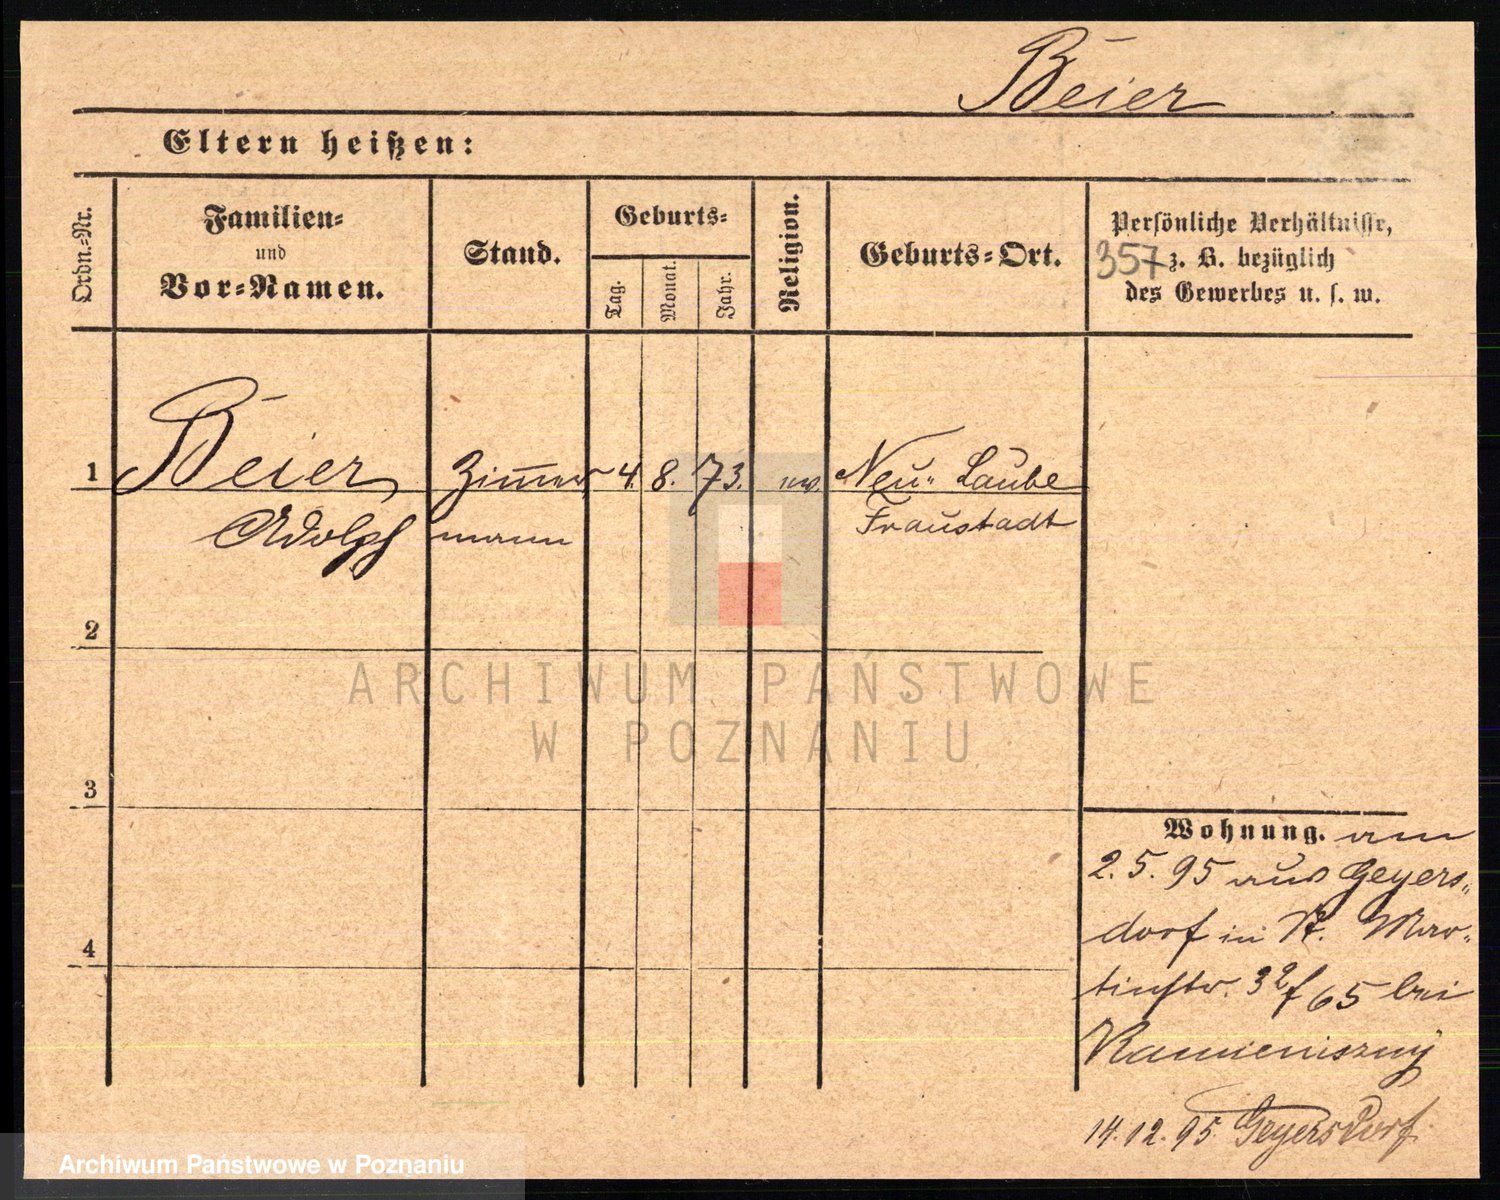 Beier
Eltern heißen:
Ordn.-Nr.
Familien-
und
Vor-Namen.
Stand.
Geburts-
Tag.
Monat.
Jahr.
Religion.
Geburts-Ort.
Persönliche Verhältnisse,
357 z. B. bezüglich
des Gewerbes u. s. w.
1 Beier Zimmer 4. 8. 73. ev. Neu-Laube
Adolph mann Fraustadt
2
ARCHIWUM PAŃSTWOWE
W POZNANIU
3
Wohnung. am
2.5.95 aus Geyers-
dorf in St. Mar-
4
tinstr. 65 bei
14.12.95 Geyersdorf
Archiwum Państwowe w Poznaniu